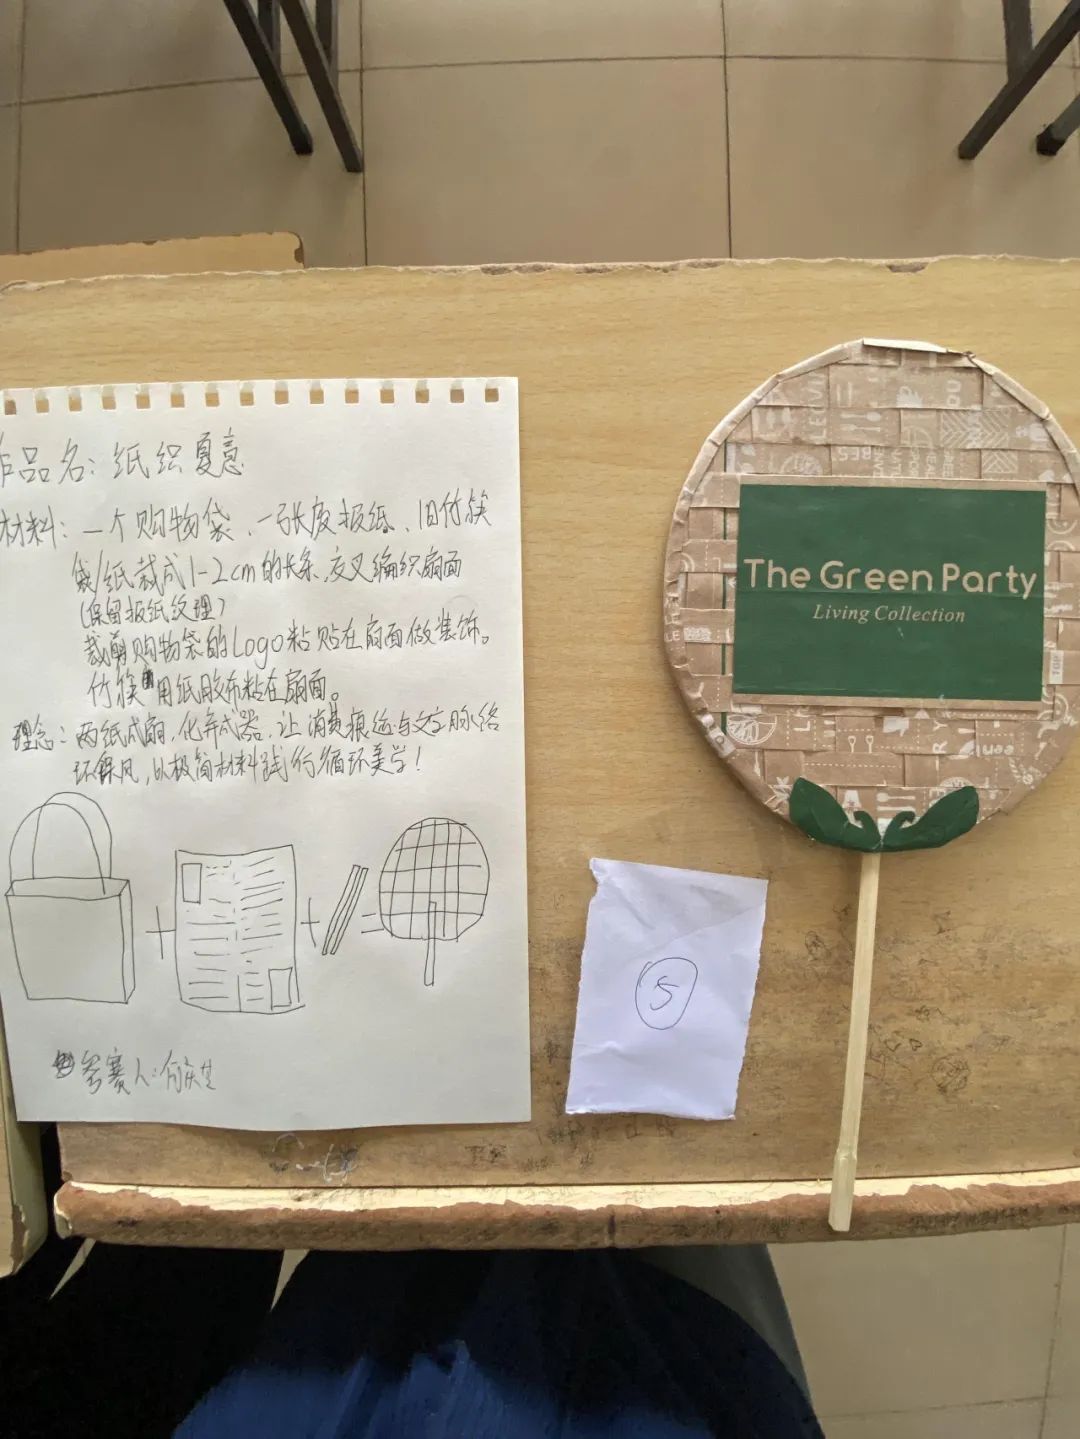 作品名：纸织夏意
材料：一个购物袋、一张废报纸、旧竹筷
袋/纸裁成1-2cm的长条，交叉编织扇面
（保留报纸纹理）
裁剪购物袋的Logo粘贴在扇面做装饰。
竹筷用纸胶布粘在扇面。
理念：两纸成扇，化弃成器，让消费痕迹与文字脉络
以极简材料践行循环美学！
参赛人：
The Green Party
Living Collection
5